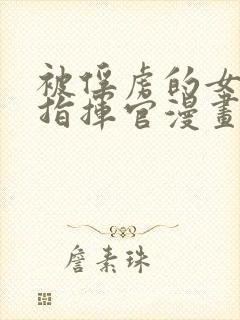 被俘虏的女
指揮官漫畫
詹素珠